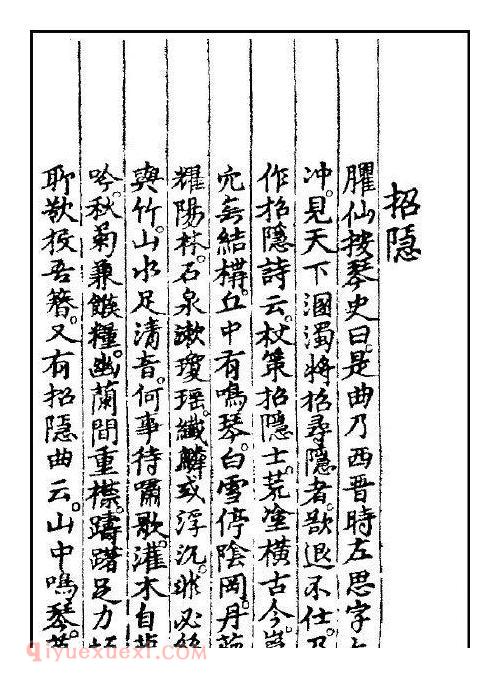 招隐
臞仙按琴史曰。是曲乃西晉時左思字
冲。見天下溷濁將招尋隐者。欲退不仕。乃
作招隐詩云。杖策招隐士。荒塗橫古今。巖
穴無結構。丘中有鳴琴。白雪停陰岡。丹葩
耀陽林。石泉漱瓊瑤。纖鱗或浮沉。非必絲
與竹。山水足清音。何事待嘯歌。灌木自悲
吟。秋菊兼餱糧。幽蘭間重襟。躊躇足力煩
聊欲投吾簪。又有招隐曲云。山中鳴琴。萬
qiyuexuexi.com